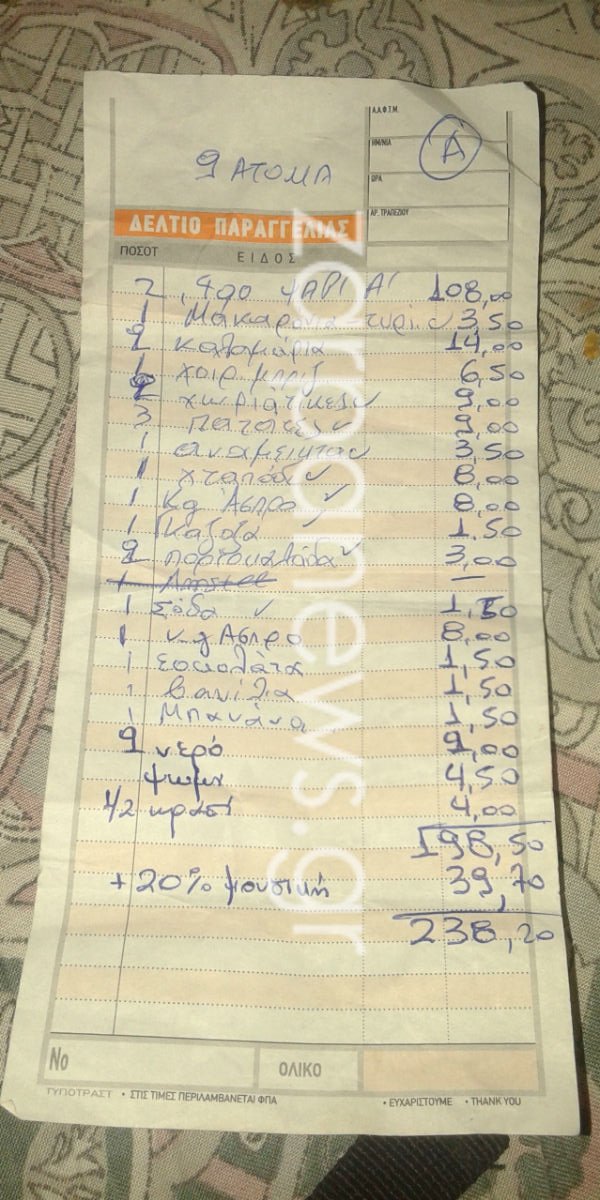 Α.Φ.Τ.Μ.
ΗΜ/ΝΙΑ
Α
ΩΡΑ
ΑΡ. ΤΡΑΠΕΖΙΟΥ
9 ΑΤΟΜΑ
ΔΕΛΤΙΟ ΠΑΡΑΓΓΕΛΙΑΣ
ΠΟΣΟΤ ΕΙΔΟΣ
2,400 ΨΑΡΙ Α' 108,00
1 Μακαρόνια τυρί ✓ 3,50
2 καλαμάρια 14,00
1 χοιρ. μπριζ 6,50
2 χωριάτικες ✓ 9,00
3 πατάτες ✓ 9,00
1 αναμεικτα ✓ 3,50
1 χταπόδι ✓ 8,00
1 Kg Άσπρο ✓ 8,00
1 Γκαζόζα ✓ 1.50
2 πορτοκαλάδα ✓ 3,00
1 Amstel —
1 Σόδα ✓ 1,50
1 κ.g Άσπρο 8,00
1 σοκολάτα 1,50
1 βανίλια 1,50
1 Μπανάνα 1,50
2 νερό 2,00
ψωμι 4,50
1/2 κρασί 4,00
198,50
+20% μουσική 39,70
238,20
zarpanews.gr
Νο ΟΛΙΚΟ
ΤΥΠΟΤΡΑΣΤ • ΣΤΙΣ ΤΙΜΕΣ ΠΕΡΙΛΑΜΒΑΝΕΤΑΙ ΦΠΑ • ΕΥΧΑΡΙΣΤΟΥΜΕ • THANK YOU